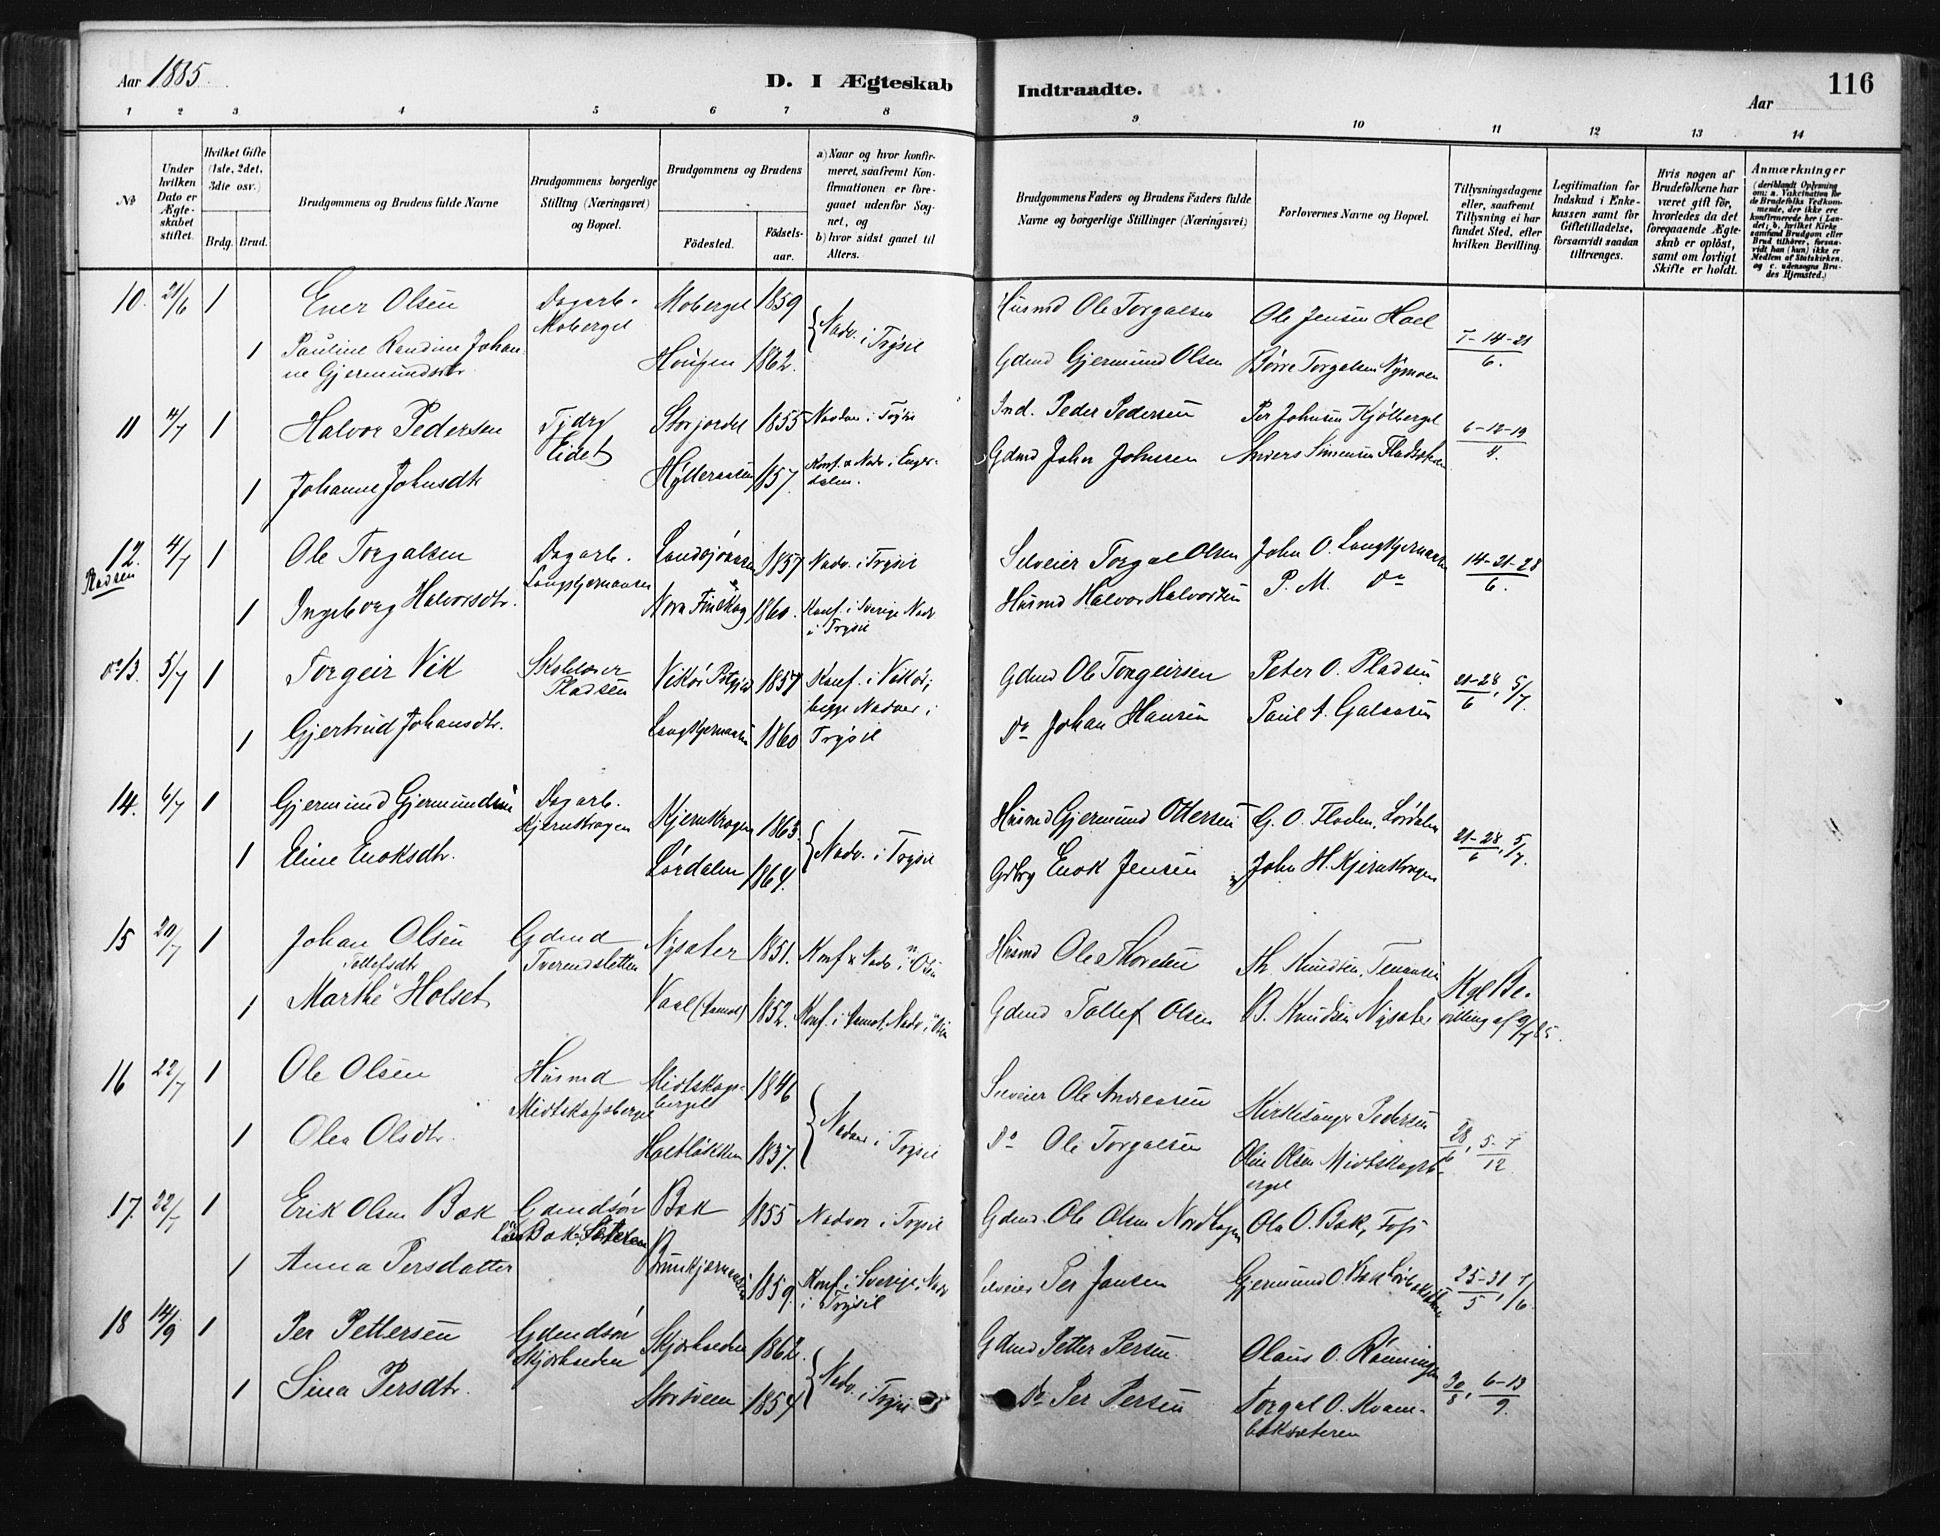 Aar 1885.
D. I Ægteskab Indtraadte.
116
Aar
1 2 3 4 5 6 7 8 9 10 11 12 13 14
No
Under hvilken Dato er Ægteskabet stiftet.
Hvilket Gifte (1ste, 2det, 3die osv.)
Brdg. Brud.
Brudgommens og Brudens fulde Navne
Brudgommens borgerlige Stilling (Næringsvei) og Bopæl.
Brudgommens og Brudens
Födested.
Födselsaar.
a) Naar og hvor konfirmeret, saafremt Konfirmationen er foregaaet udenfor Sognet, og
b) hvor sidst gaaet til Alters.
Brudgommens Faders og Brudens Faders fulde Navne og borgerlige Stillinger (Næringsvei)
Forlovernes Navne og Bopæl.
Tillysningsdagene eller, saafremt Tillysning ei har fundet Sted, efter hvilken Bevilling.
Legitimation for Indskud i Enkekassen samt for Giftetilladelse, forsaavidt saadan tiltrænges.
Hvis nogen af Brudefolkene har været gift för, hvorledes da det foregaaende Ægteskab er oplöst, samt om lovligt Skifte er holdt.
Anmærkninger
(deriblandt Oplysning om: a. Vakcination for de Brudefolks Vedkommende, der ikke ere konfirmerede her i Landet; b. hvilket Kirkesamfund Brudgom eller Brud tilhörer, forsaavidt han (hun) ikke er Medlem af Statskirken, og c. udensogns Brudes Hjemsted.)
10. 21/6 1 Ener Olsen Dagarb. Moberget Moberget 1859 Nadv. i Trysil Husmd Ole Torgalsen Ole Jensen Hoel 7-14-21/6.
1 Pauline Randine Johanne Gjermundsdtr Hougen 1862. Gdmd Gjermund Olsen Börre Torgalsen Nymoen
11 4/7 1 Halvor Pedersen Eidet Storjordet 1855 Nadver i Trysil Ind. Peder Pedersen Per Johnsen Kjölberget 6-12-19/4.
1 Johanne Johnsdtr Hylleraasen 1857. Konf. & Nadv. i Engerdalen. Gdmd John Johnsen Anders Simensen
12. Pladsen 4/7 1 Ole Torgalsen Dagarb. Langkjernaasen 1837 Nadv. i Trysil Selveier Torgal Olsen John O. Langkjernaasen 14-21-28/6.
1 Ingeborg Halvorsdtr. Norra Finskog 1860. Konf. i Sverige Nadv. i Trysil Husmd Halvor Halvorsen P. M. Do
Do 13. 5/7 1 Torgeir Vik Skolelærer Pladsen Vikör 1857 Konf. i Vikör; begge Nadver i Trysil Gdmd Ole Torgeirsen Peter O. Pladsen 21-28/6, 5/7.
1 Gjertrud Johansdtr. Langkjernaasen 1860 Do Johan Hansen Paul A. Galaasen
14. 6/7 1 Gjermund Gjermundsen Dagarb. Kjernkrogen Kjernkrogen 1863 Nadv. i Trysil Husmd Gjermund Ottersen G. O. Floden, Lördalen 21-28/6, 5/7.
1 Eline Enoksdtr. Lördalen 1864. Gdbrg Enok Jensen John H. Kjernkrogen
15 20/7 1 Johan Olsen Gdmd Tverendsletten Nysæter 1851. Konf. & Nadv. i Husmd Ole Thoresen Th. Knudsen, Kgl Bevilling af 9/7 85.
1 Marthe Tollefsdtr Holset Vaal (Aamot) 1852. Konf. i Aamot, Nadv. i Gdmd Tollef Olsen B. Knudsen Nysæter
16 22/7 1 Ole Olsen Husmd Midtskogsberget Midtskogsberget 1846 Nadver i Trysil Selveier Ole Andreasen Kirkesanger Pedersen 28/6, 5-7/12.
1 Olea Olsdtr. Holtlökken 1837. Do Ole Torgalsen Oline Olsen Midtskogsberget
17. 22/7 1 Erik Olsen Bæk Gdmdsön Bæk 1855 Nadver i Trysil Gdmd. Ole Olsen Ole O. Bæk, 25-31/5, 7/6.
1 Anna Persdatter 1859. Konf. i Sverige, Nadv. i Trysil Selveier Per Jansen Gjermund O. Bæk
18 14/9 1 Per Pettersen Gdmdsön Skjærbæden Skjærbæden 1862. Nadv. i Trysil Gdmd Petter Persen Olaus O. Rönningen 30/8, 6-13/9.
1 Sina Persdtr. 1854 Do Per Persen Torgal O. Kvambæksæteren